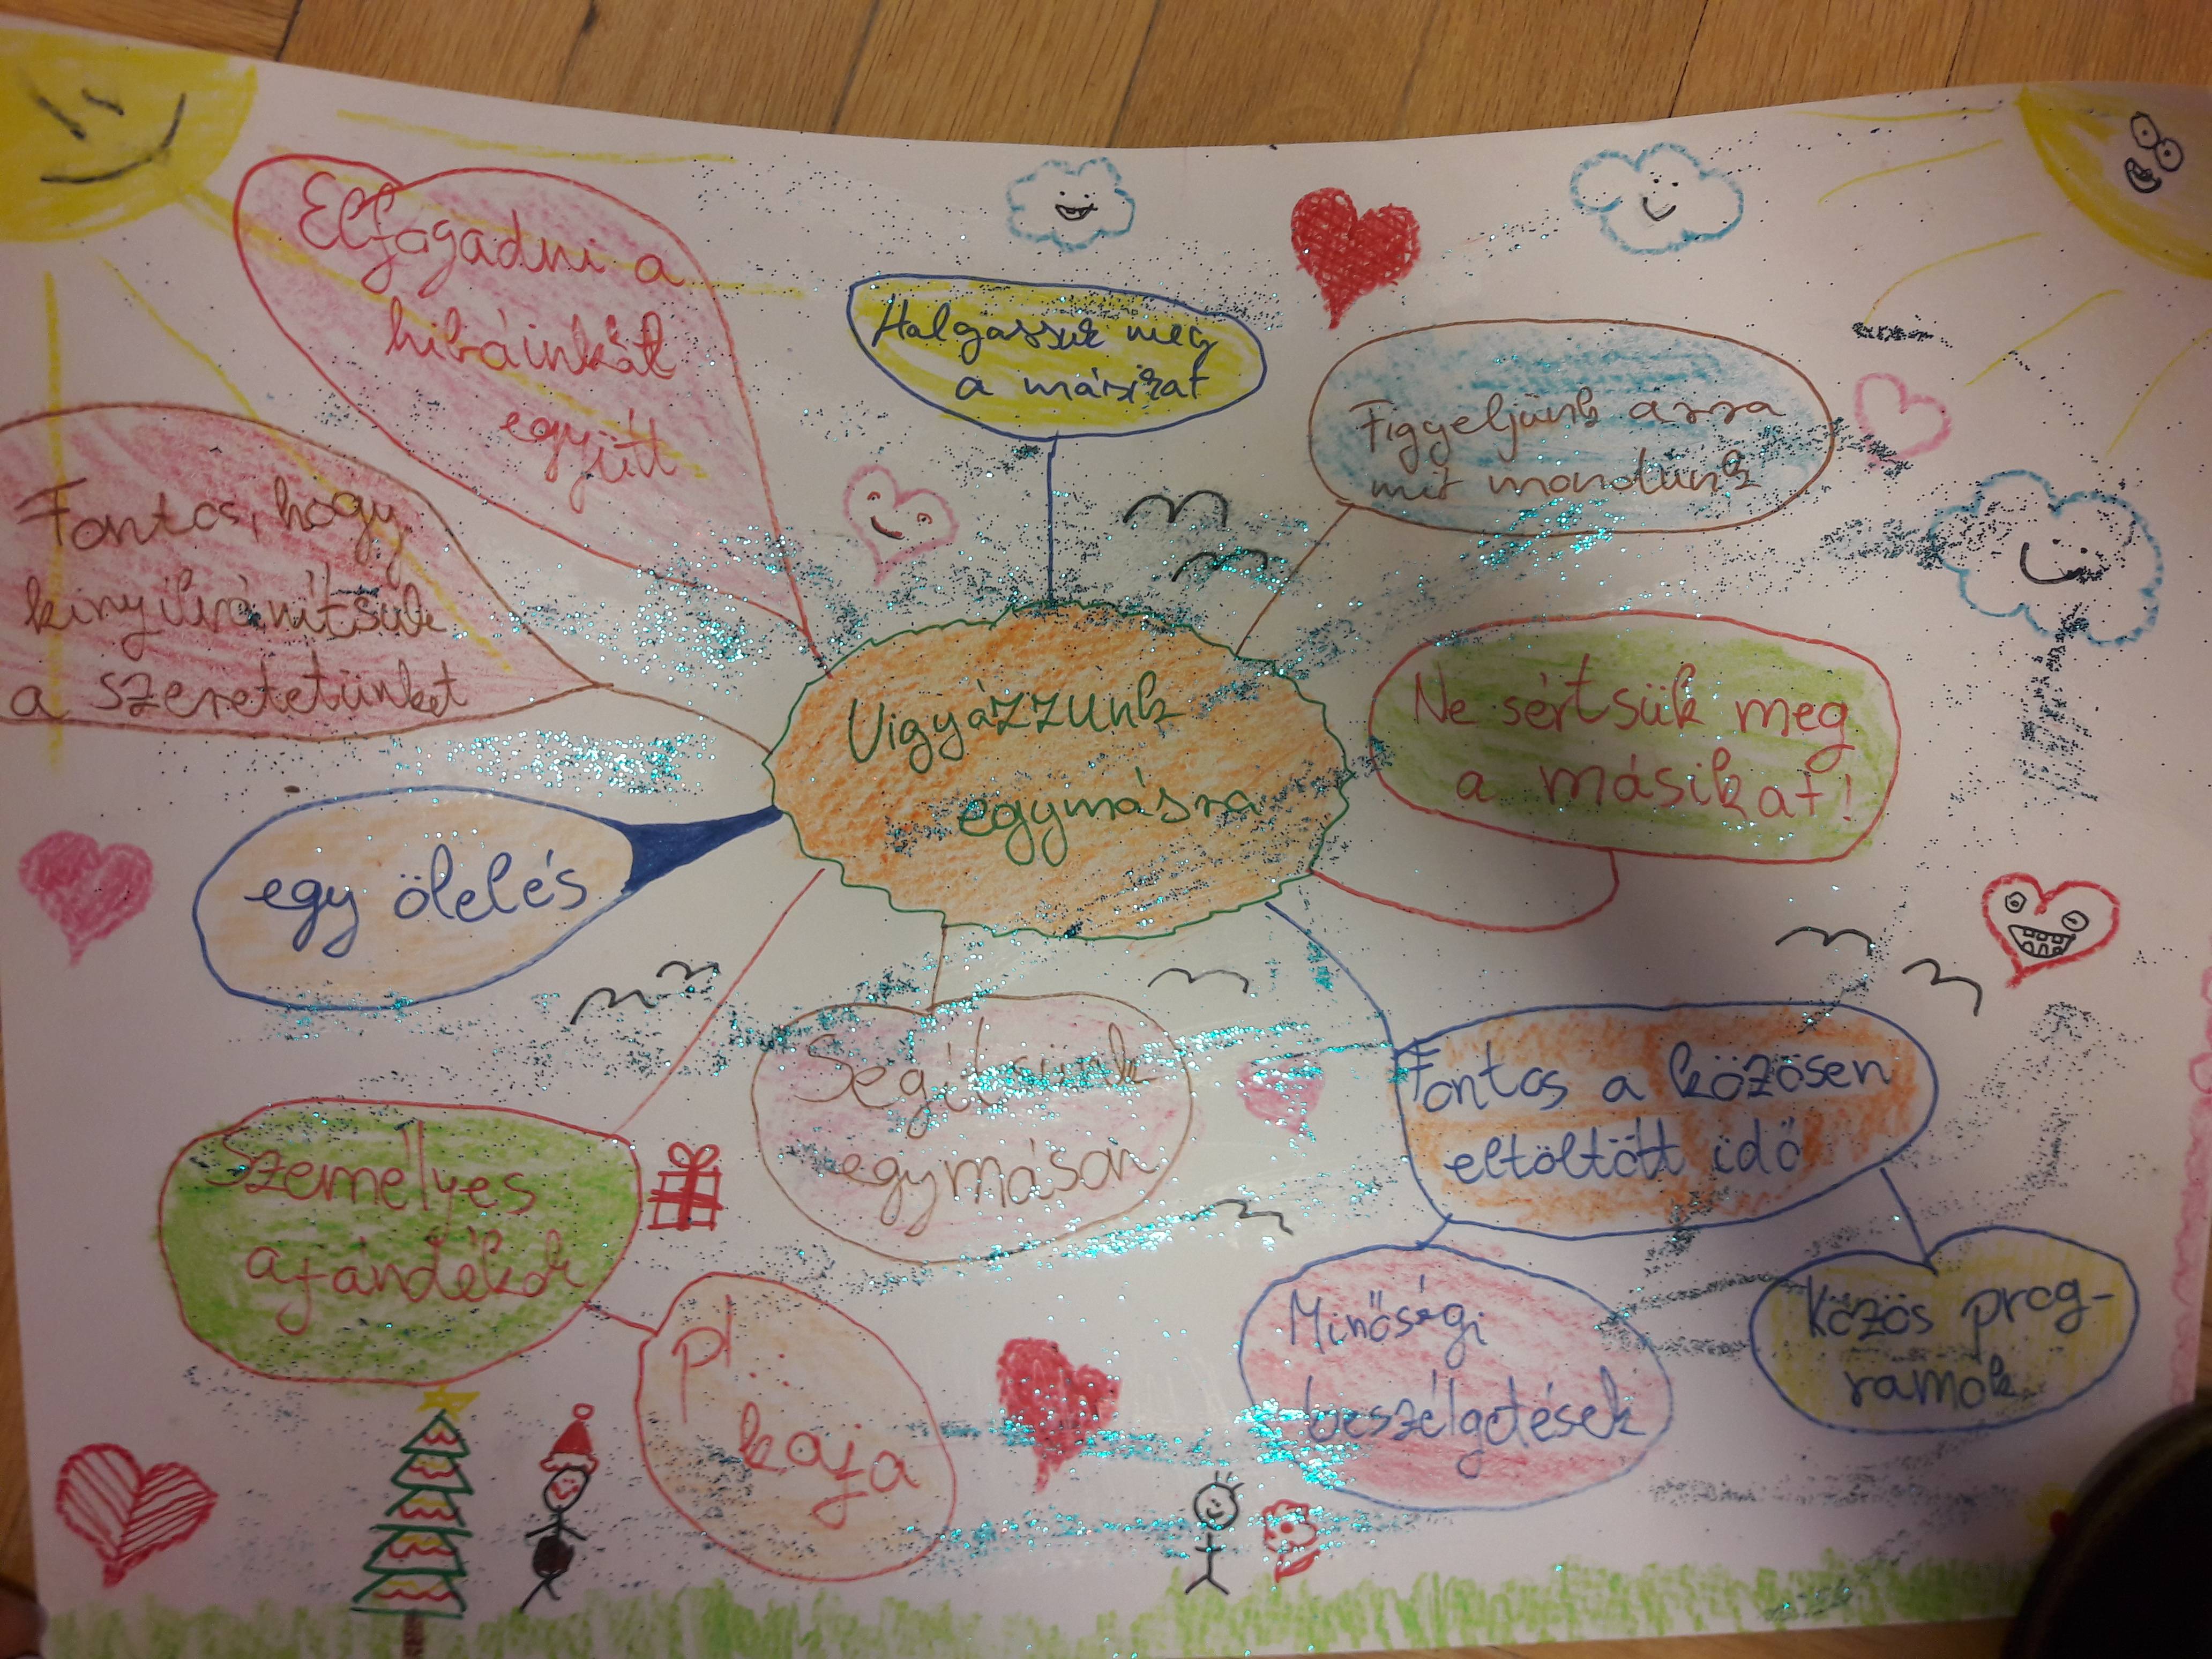 Elfogadni a
hibáinkat
együtt
Halgassuk meg
a másikat
Figyeljünk arra
mit mondunk
Fontos, hogy
kinyilvánítsuk
a szeretetünket
Vigyázzunk
egymásra
Ne sértsük meg
a másikat!
egy ölelés
Segítsünk
egymáson
Fontos a közösen
eltöltött idő
Személyes
ajándékok
pl
kaja
Minőségi
beszélgetések
Közös prog-
ramok